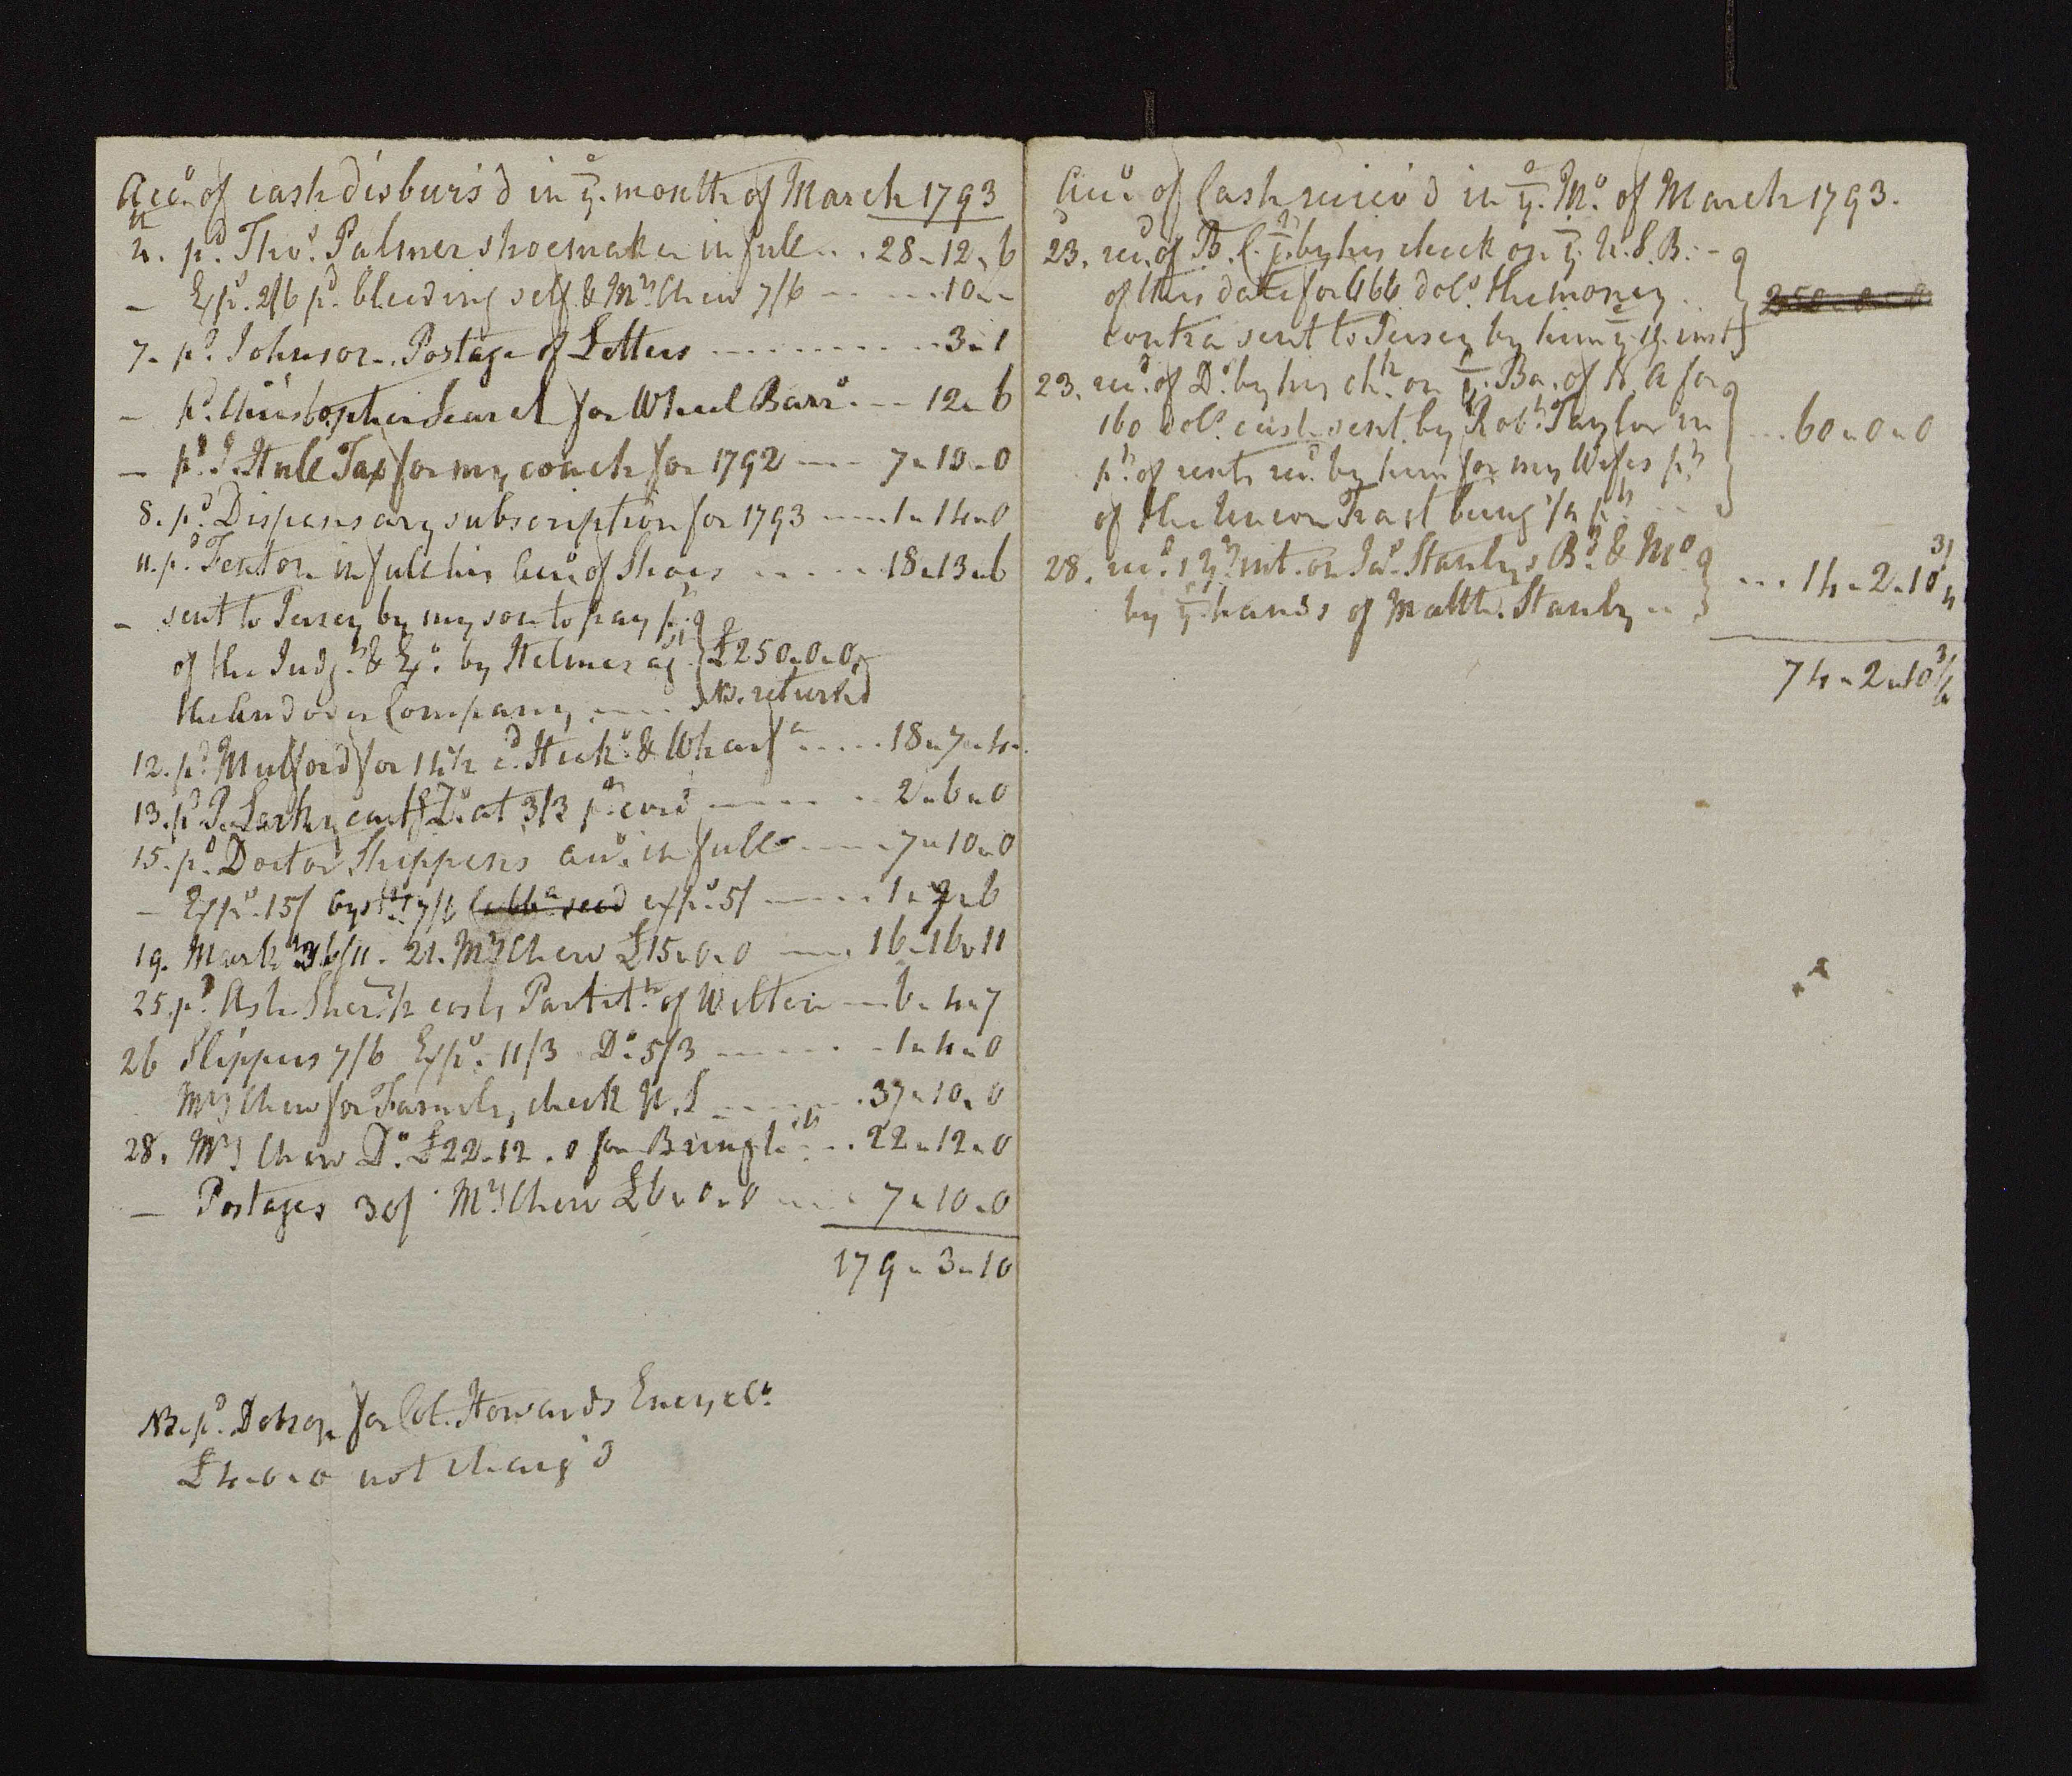 Acco. of cash disburs'd in ye. month of March 1793
4. pd. Thos. Palmer shoemaker in full .. . 28 - 12 - 6
- Exps. 2/6 pd. bleeding self & Mrs Chew 7/6 --- ... 10 - -
7. pd. Johnson Postage of Letters ---------- 3 - 1
- pd. Christopher Search for Wheel Barro. --- 12 - 6
- pd. J. Hale Tax for my coach for 1792 ---- 7 - 10 - 0
8. pd. Dispensary subscription for 1793 ---- 1 - 14 - 0
11. pd. Fenton in full his Acco. of Shoes ----- 18 - 13 - 6
- sent to Jersey by my son to pay pt.
of the Judgt. & Exo. by Helmes agt. } £250 - 0 - 0
the Andover Company ---- NB. returnd
12. pd. Mulford for 14 1/2 cd. Hick. & Wharfa ..... 18 - 7 - 4
13. pd. P. Larky cart Do. at 3/3 pr. cord ------ 2 - 6 - 0
15. pd. Doctor Shippens acco. in full ---- 7 - 10 - 0
- Exps. 15/ oystrs. 7/6 Cabba seed exps. 5/ ----- 1 - 7 - 6
19. Markt. 36/11 - 21. Mrs Chew £15 - 0 - 0 ---- 16 - 16 - 11
25. pd. Ash Sherf. 1/2 costs Partitn. of Wilton --- 6 - 4 - 7
26 Slippers 7/6 Exps. 11/3 Do. 5/3 ------ - 1 - 4 - 0
Mrs Chew for Family, check U.S ------ . 37 - 10 - 0
28. Mrs Chew Do. £22 - 12 - 0 for Bringhst. -- . 22 - 12 - 0
- Postages 30/ Mrs Chew £6 - 0 - 0 ---- 7 - 10 - 0
179 - 3 - 10
NB. pd. Dobson for Col. Howards Encycca.
£4 - 0 - 0 not charg'd
Acco. of Cash receiv'd in ye. Mo. of March 1793.
23. recd. of B. C. Jr. by his check on ye. U.S.B. -
of this date for 666 dols. the money } 250 - 0 - 0
contra sent to Jersey by him ye. 11. inst
23. recd. of Do. by his chk. on ye. Ba. of N A for
160 dols. cash sent by Robt. Taylor in } --- 60 - 0 - 0
pt. of rents recd. by him for my Wifes pt.
of the Union Tract being 1/2 pt. ...
28. recd. 1 yrs int. on Jas. Stanlys Bd. & Mo. } ... 14 - 2 - 10 3/4
by ye. hands of Matth. Stanly ..
74 - 2 - 10 3/4